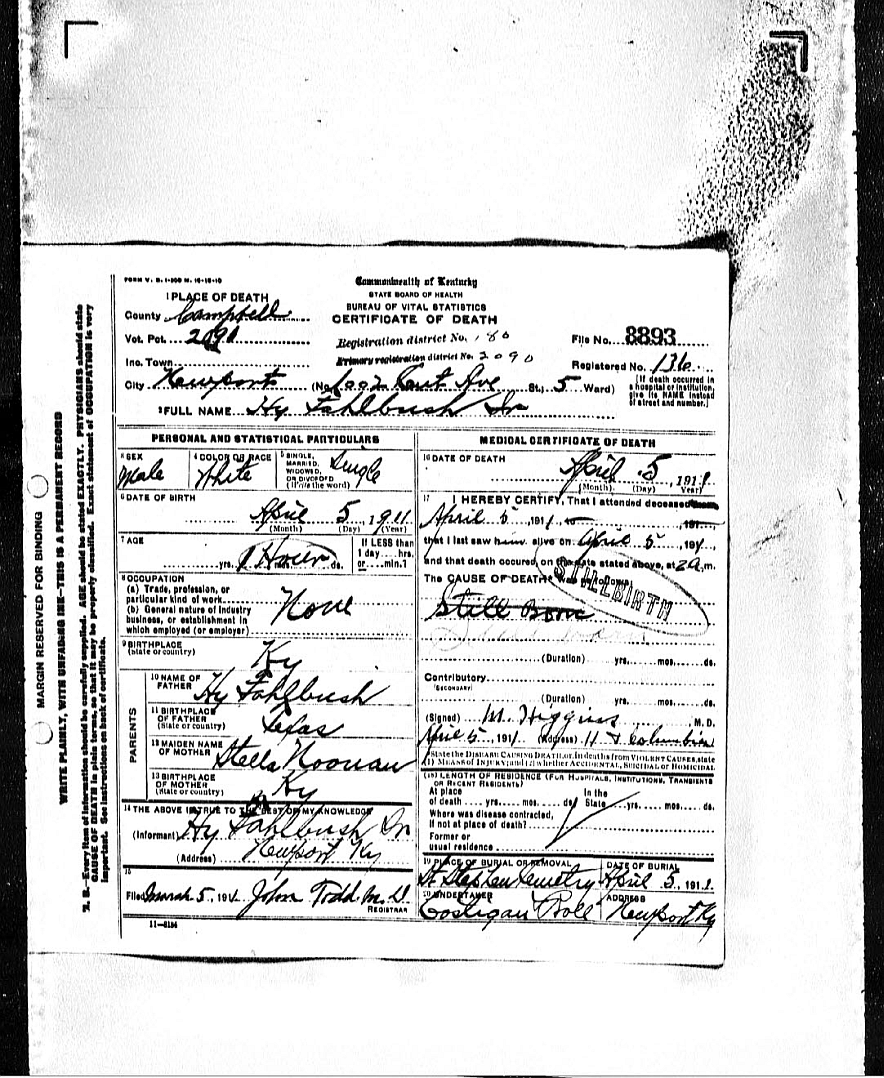 FORM V. S. 1-300 M. 10-18-10
Commonwealth of Kentucky
STATE BOARD OF HEALTH
BUREAU OF VITAL STATISTICS
CERTIFICATE OF DEATH
1 PLACE OF DEATH
County Campbell
Vot. Pct. 2090
Inc. Town
City Newport (No. 1002 St.; 5 Ward)
Registration district No. 180
Primary registration district No. 2090
File No. 8893
Registered No. 136
[If death occurred in a hospital or institution, give its NAME instead of street and number.]
2 FULL NAME Hy Fahlbush Jr
PERSONAL AND STATISTICAL PARTICULARS
3 SEX Male
4 COLOR OR RACE White
5 SINGLE, MARRIED, WIDOWED, OR DIVORCED (Write the word) Single
6 DATE OF BIRTH
April 5, 1911
(Month) (Day) (Year)
7 AGE
1 Hour
yrs. ds.
If LESS than 1 day....hrs. or.....min.?
8 OCCUPATION
(a) Trade, profession, or particular kind of work
(b) General nature of industry business, or establishment in which employed (or employer)
None
9 BIRTHPLACE (State or country) Ky
PARENTS
10 NAME OF FATHER Hy Fahlbush
11 BIRTHPLACE OF FATHER (State or country) Texas
12 MAIDEN NAME OF MOTHER Stella Noonan
13 BIRTHPLACE OF MOTHER (State or country) Ky
14 THE ABOVE IS TRUE TO THE BEST OF MY KNOWLEDGE
(Informant) Hy Fahlbush Sr
(Address) Newport Ky
15
Filed March 5, 1911 John Todd M.D.
REGISTRAR
11-8184
MEDICAL CERTIFICATE OF DEATH
16 DATE OF DEATH
April 5, 1911
(Month) (Day) Year)
17 I HEREBY CERTIFY, That I attended deceased from
April 5, 1911, to 191
that I last saw him alive on April 5, 191
and that death occured, on the date stated above, at 2 a.m.
The CAUSE OF DEATH* was as follows:
STILLBIRTH
Still Born
(Duration) yrs. mos. ds.
Contributory
(SECONDARY)
(Duration) yrs. mos. ds.
(Signed) M. Higgins M. D.
April 5, 1911 (Address) 11 & Columbia
*State the DISEASE CAUSING DEATH, or, in deaths from VIOLENT CAUSES, state (1) MEANS OF INJURY; and (2) whether ACCIDENTAL, SUICIDAL or HOMICIDAL
(18) LENGTH OF RESIDENCE (FOR HOSPITALS, INSTITUTIONS, TRANSIENTS OR RECENT RESIDENTS)
At place of death yrs. mos. ds. In the State yrs. mos. ds.
Where was disease contracted, if not at place of death?
Former or usual residence
19 PLACE OF BURIAL OR REMOVAL St Stephen Cemetry
DATE OF BURIAL April 5, 1911
20 UNDERTAKER Costigan
ADDRESS Newport Ky
MARGIN RESERVED FOR BINDING
WRITE PLAINLY, WITH UNFADING INK—THIS IS A PERMANENT RECORD
N. B.—Every item of information should be carefully supplied. AGE should be stated EXACTLY. PHYSICIANS should state
CAUSE OF DEATH in plain terms, so that it may be properly classified. Exact statement of OCCUPATION is very
important. See instructions on back of certificate.